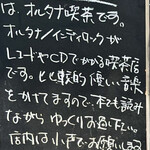 は、オルタナ喫茶です。
オルタナ/インディロックが
レコードやCDでかかる喫茶店
です。比較的優しい音楽
をかけてますので、本でも読み
ながらゆっくりお過ごし下さい。
店内は小声でお願いします